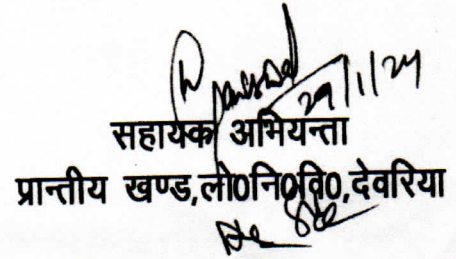 29/1/24
सहायक अभियन्ता
प्रान्तीय खण्ड,लो0नि0वि0,देवरिया